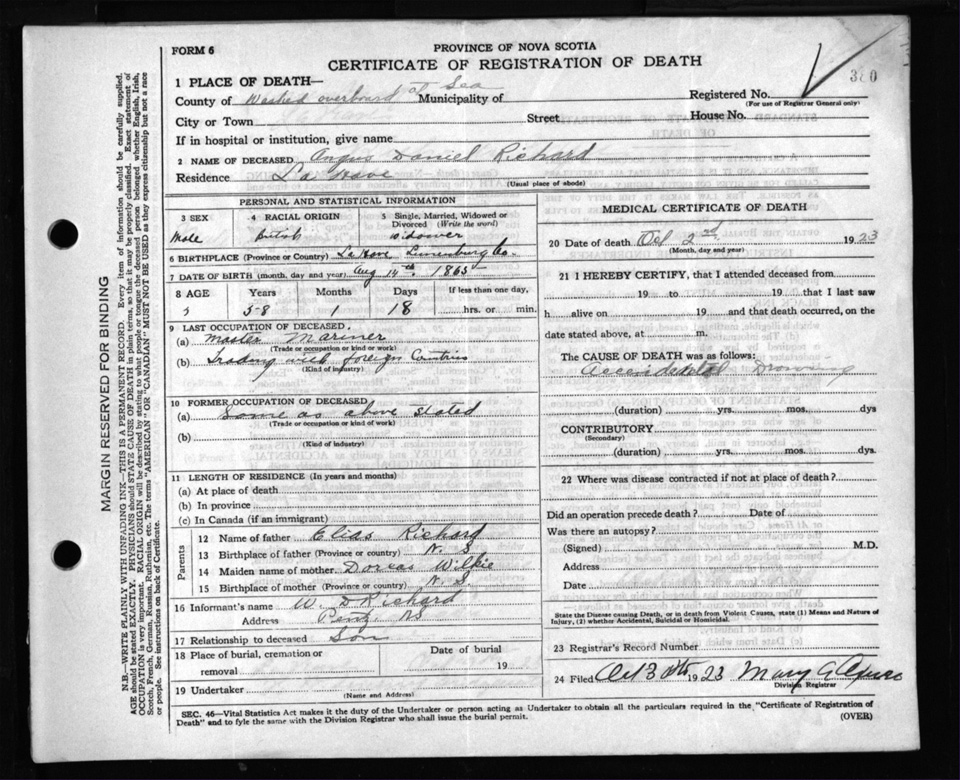 FORM 6
PROVINCE OF NOVA SCOTIA
CERTIFICATE OF REGISTRATION OF DEATH
380
1 PLACE OF DEATH—
County of Washed overboard at Sea Municipality of
Registered No.
(For use of Registrar General only)
City or Town Street House No.
If in hospital or institution, give name
2 NAME OF DECEASED Angus Daniel Richard
Residence La Have
(Usual place of abode)
PERSONAL AND STATISTICAL INFORMATION
3 SEX 4 RACIAL ORIGIN 5 Single, Married, Widowed or Divorced (Write the word)
Male British widower
6 BIRTHPLACE (Province or Country) La Have Lunenburg Co.
7 DATE OF BIRTH (month, day and year) Aug 14th 1865
8 AGE Years Months Days If less than one day,
58 1 18 hrs. or min.
9 LAST OCCUPATION OF DECEASED
(a) Master Mariner
(Trade or occupation or kind or work)
(b) Trading with foreign Contries
(Kind of industry)
10 FORMER OCCUPATION OF DECEASED
(a) Same as above stated
(Trade or occupation or kind of work)
(b)
(Kind of industry)
11 LENGTH OF RESIDENCE (In years and months)
(a) At place of death
(b) In province
(c) In Canada (if an immigrant)
Parents
12 Name of father Elias Richard
13 Birthplace of father (Province or country) N. S
14 Maiden name of mother Dorcas Wilkie
15 Birthplace of mother (Province or country) N. S.
16 Informant's name W. D Richard
Address
17 Relationship to deceased Son
18 Place of burial, cremation or removal Date of burial
19
19 Undertaker
(Name and Address)
MEDICAL CERTIFICATE OF DEATH
20 Date of death Oct 2nd 1923
(Month, day and year)
21 I HEREBY CERTIFY, that I attended deceased from
19 to 19 that I last saw
h alive on 19 and that death occurred, on the
date stated above, at m.
The CAUSE OF DEATH was as follows:
Accendatal Drowning
(duration) yrs. mos. dys
CONTRIBUTORY
(Secondary)
(duration) yrs. mos. dys
22 Where was disease contracted if not at place of death?
Did an operation precede death? Date of
Was there an autopsy?
(Signed) M.D.
Address
Date
State the Disease causing Death, or in death from Violent Causes, state (1) Means and Nature of
Injury, (2) whether Accidental, Suicidal or Homicidal.
23 Registrar's Record Number
24 Filed Oct 30th 1923 Mary
Division Registrar
SEC. 46—Vital Statistics Act makes it the duty of the Undertaker or person acting as Undertaker to obtain all the particulars required in the "Certificate of Registration of
Death" and to fyle the same with the Division Registrar who shall issue the burial permit.
(OVER)
MARGIN RESERVED FOR BINDING
N.B.—WRITE PLAINLY WITH UNFADING INK—THIS IS A PERMANENT RECORD. Every item of information should be carefully supplied.
AGE should be stated EXACTLY. PHYSICIANS should STATE CAUSE OF DEATH in plain terms, so that it may be properly classified. Exact statement of
OCCUPATION is very important. RACIAL ORIGIN will be described by stating to what people or tongue the deceased person belonged whether English, Irish,
Scotch, French, German, Russian, Ruthenian, etc. The terms "AMERICAN" OR "CANADIAN" MUST NOT BE USED as they express citizenship but not a race
or people. See instructions on back of Certificate.